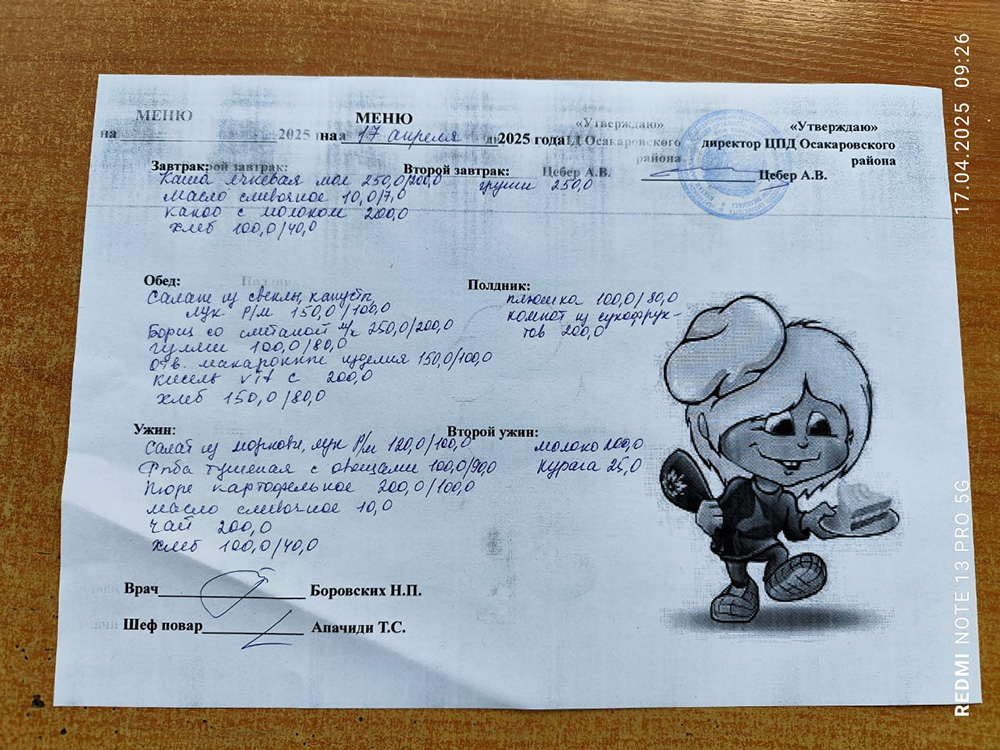 МЕНЮ
на 17 апреля 2025 года
«Утверждаю»
директор ЦПД Осакаровского
района
Цебер А.В.
Завтрак:
Каша ячневая мол 250,0/200,0
масло сливочное 10,0/7,0
какао с молоком 200,0
хлеб 100,0/40,0
Второй завтрак:
груши 250,0
Обед:
Салат из свеклы, капусты,
лук р/м 150,0/100,0
Борщ со сметаной м/к 250,0/200,0
гуляш 100,0/80,0
отв. макаронные изделия 150,0/100,0
кисель vit c 200,0
хлеб 150,0/80,0
Полдник:
плюшка 100,0/80,0
компот из сухофрук-
тов 200,0
Ужин:
Салат из моркови, лук р/м 120,0/100,0
Рыба тушеная с овощами 100,0/90,0
Пюре картофельное 200,0/100,0
масло сливочное 10,0
чай 200,0
хлеб 100,0/40,0
Второй ужин:
молоко 200,0
курага 25,0
Врач Боровских Н.П.
Шеф повар Апачиди Т.С.
МЕНЮ
на 2025
«Утверждаю»
Осакаровского
района
Цебер А.В.
17.04.2025 09:26
REDMI NOTE 13 PRO 5G